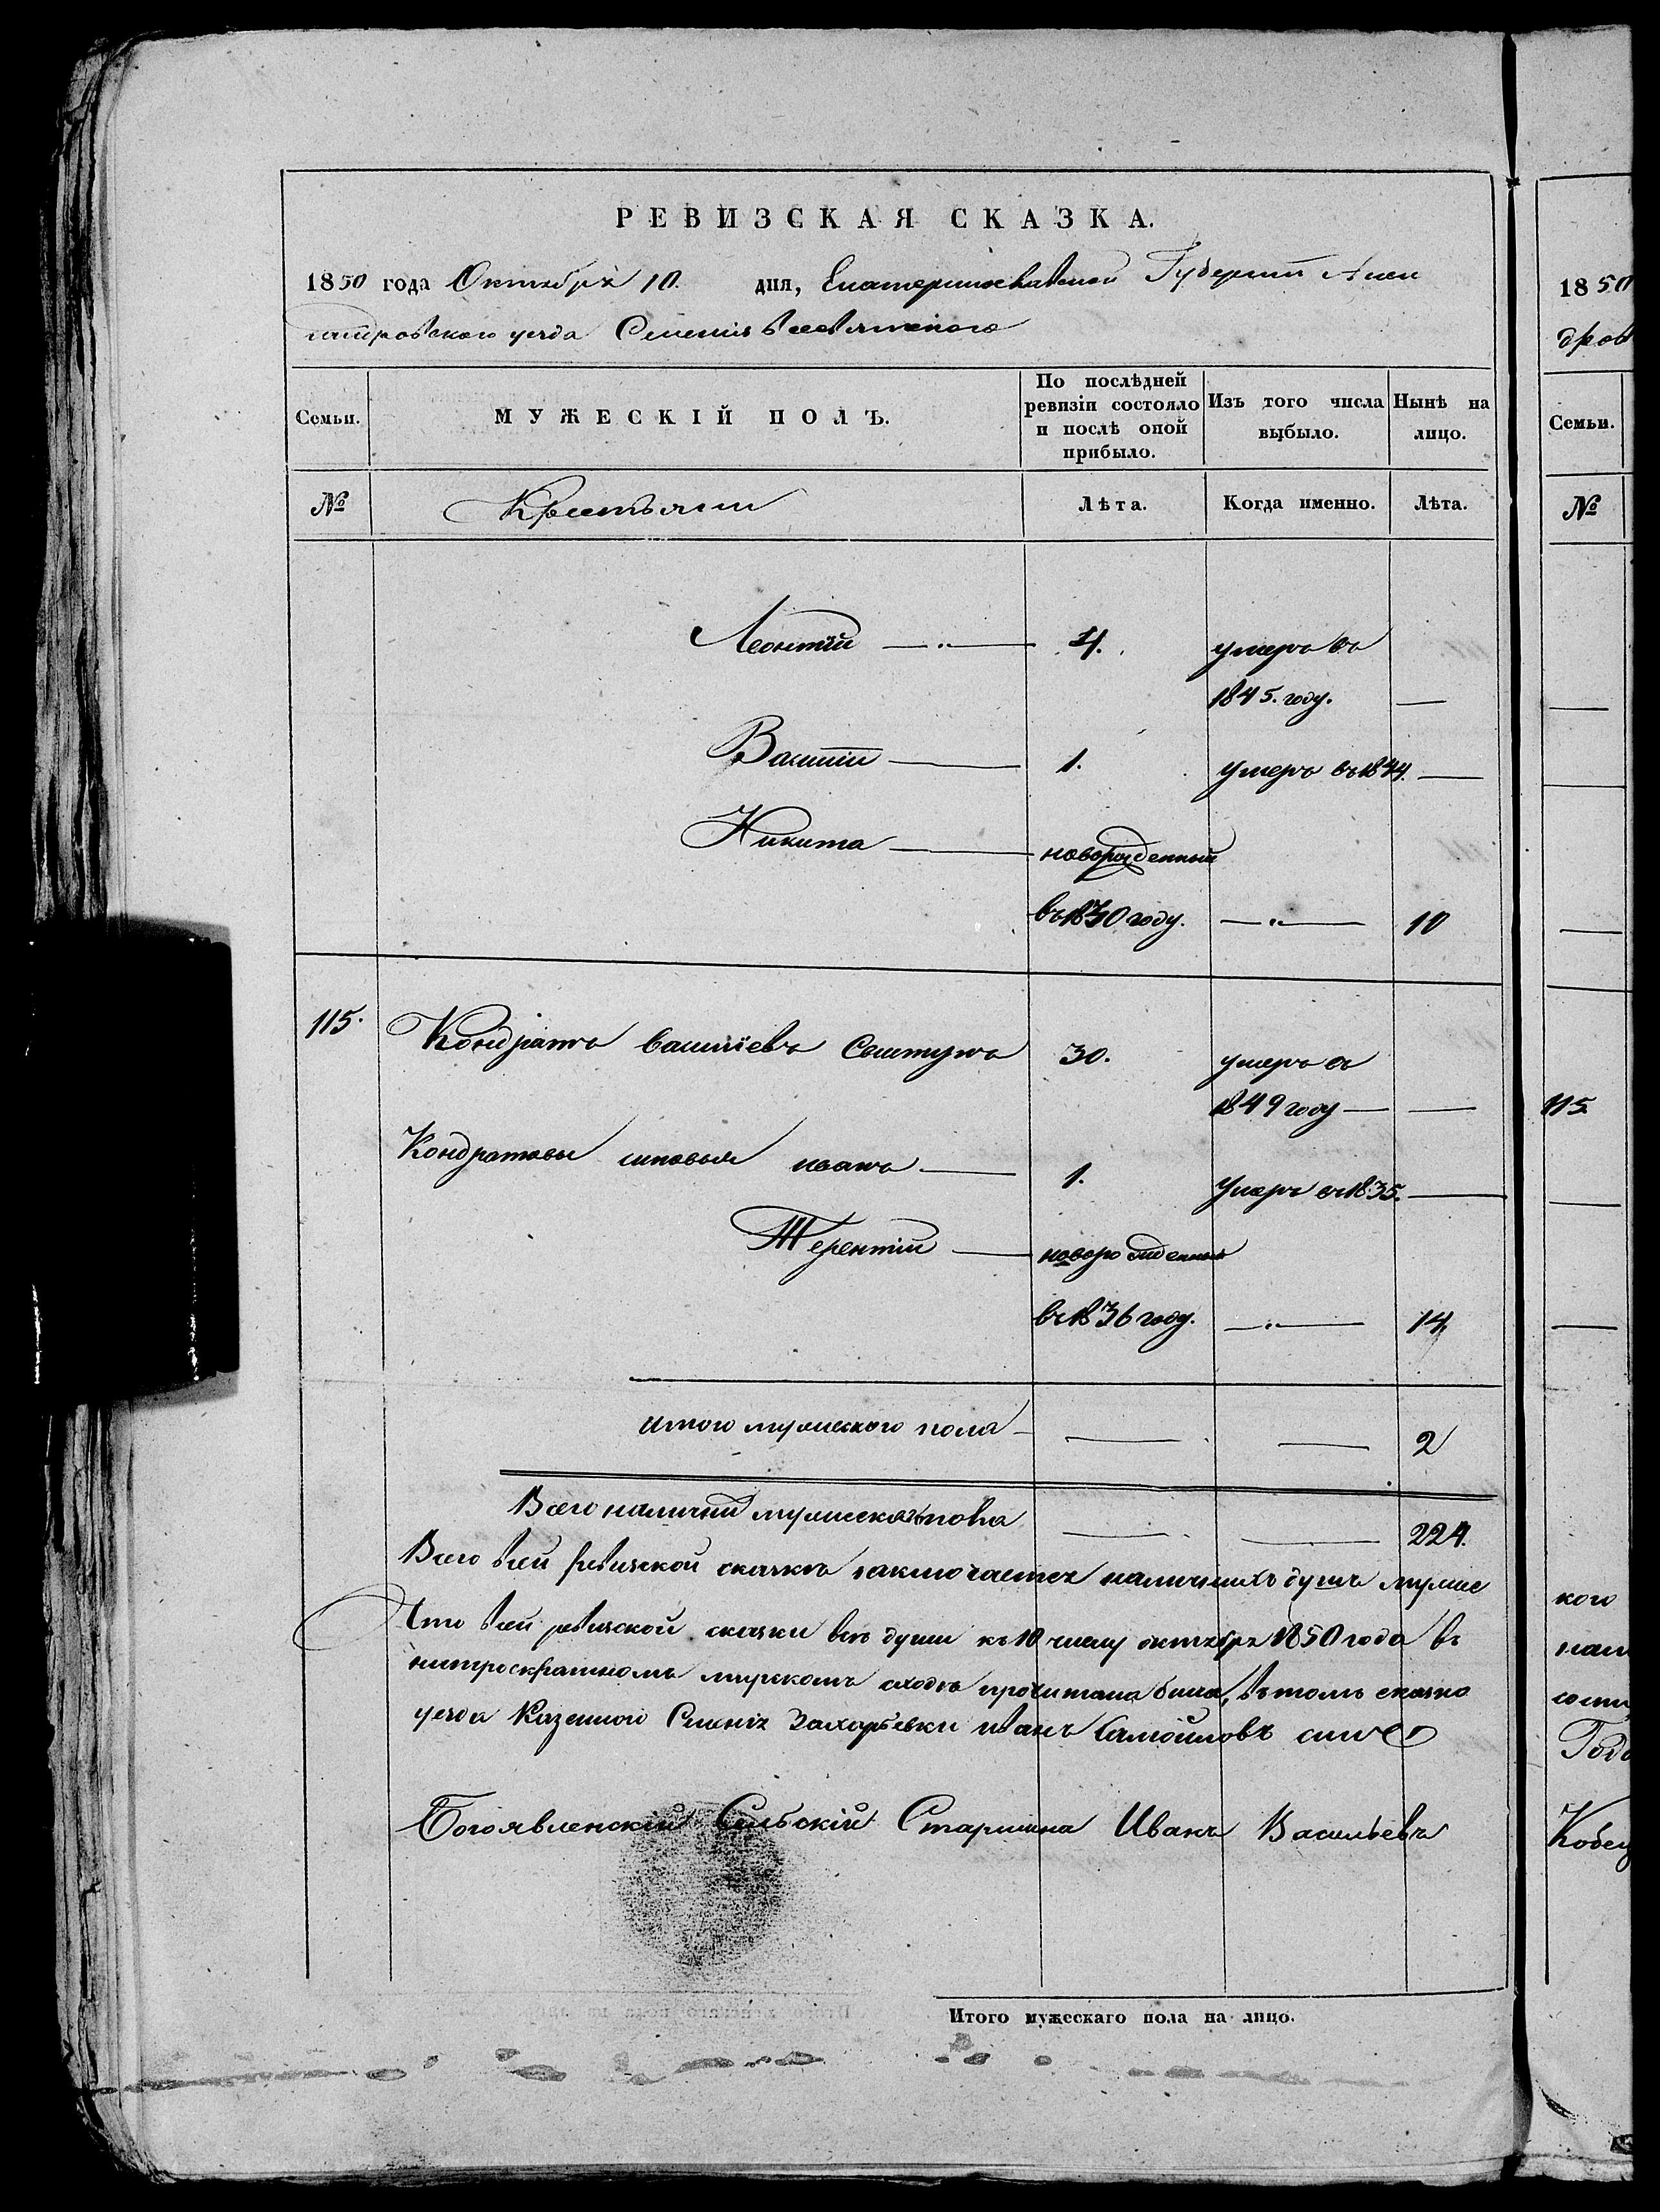 РЕВИЗСКАЯ СКАЗКА.
1850 года Октября 10. дня, Екатеринославской Губерніи Алек
сандровскаго уезда Селенія Всесвятскаго
Семьи. МУЖЕСКІЙ ПОЛЪ. По послѣдней ревизіи состояло и послѣ оной прибыло. Изъ того числа выбыло. Нынѣ на лицо.
№ Крестьяни Лѣта. Когда именно. Лѣта.
Леонтій — 4. умеръ въ
1845. году. —
Василій — 1. умеръ въ 1844. —
Никита — новорожденный
въ 1840 году. — 10
115. Кондратъ Василіевъ 30. умеръ въ
1849 году — —
Кондратовы сыновья Иванъ — 1. умеръ въ 1835. —
Терентій — новорожденный
въ 1836 году. — 14.
Итого мужескаго пола — — — 2
Всего наличныхъ мужеска пола — — 224.
Всего в сей ревизской сказкѣ заключается наличныхъ душъ муже
Что в сей ревизской сказки всѣ души къ 10 числу октября 1850 года въ
мирскомъ сходѣ прочитана была, въ томъ
уезда Казенной Селенія Захарьевки Иванъ Самойловъ сынъ
Богоявленскій Сельскій Старшина Иванъ Васильевъ
Итого мужескаго пола на лицо.
1850
дров
Семьи.
№
115.
кого
нап
Кобец